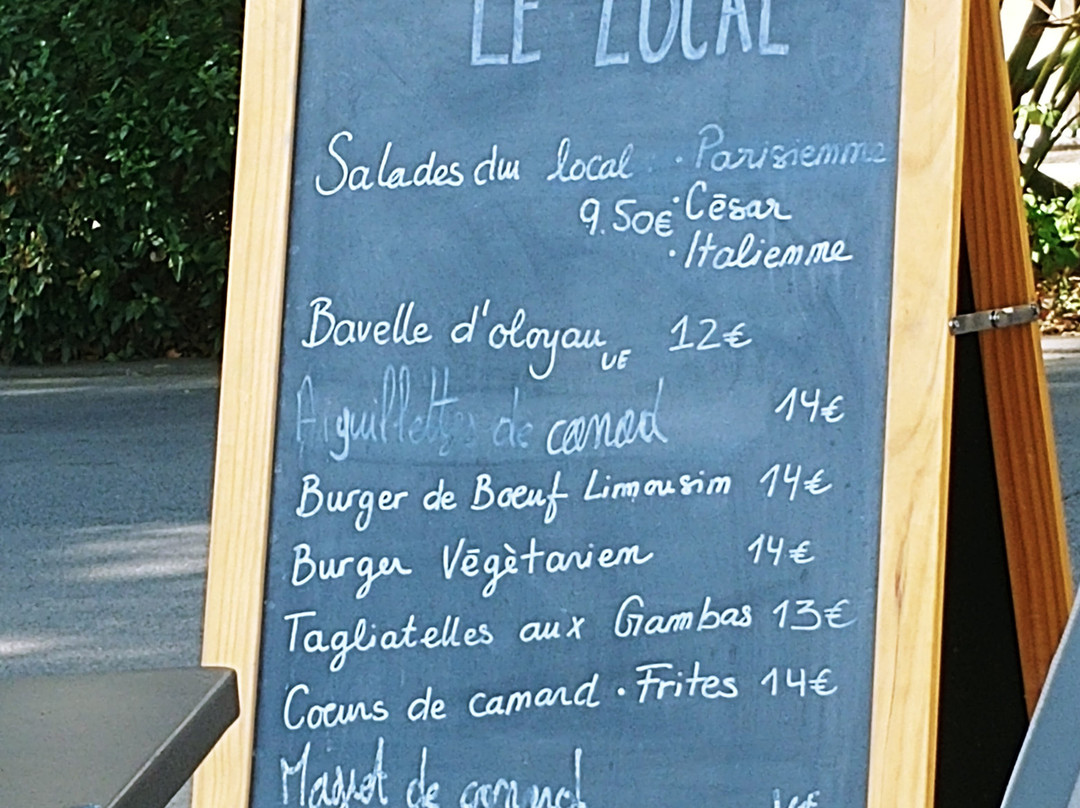 LE LOCAL
Salades du local · Parisienne
9.50€ · César
· Italienne
Bavelle d'oloyau UE 12€
Aiguillettes de canard 14€
Burger de Bœuf Limousin 14€
Burger Végètarien 14€
Tagliatelles aux Gambas 13€
Coeurs de canard · Frites 14€
Magret de canard